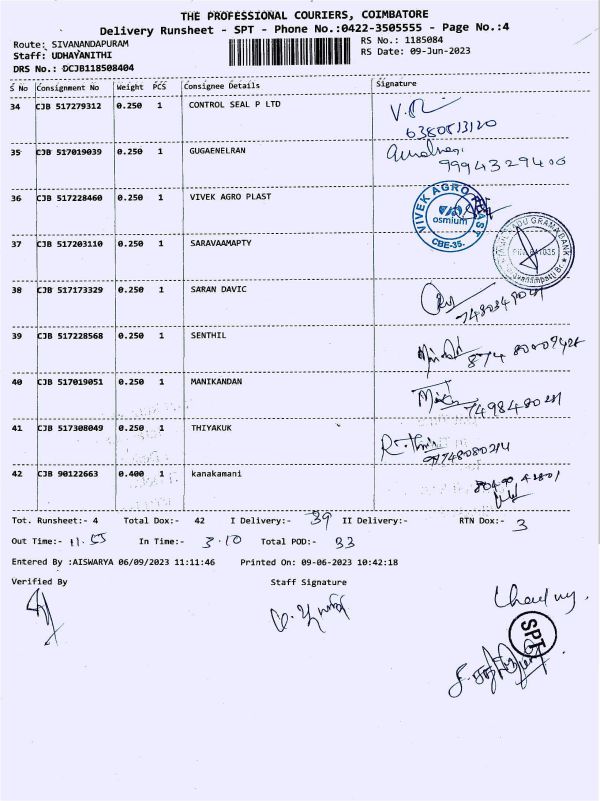 THE PROFESSIONAL COURIERS, COIMBATORE
Delivery Runsheet - SPT - Phone No.:0422-3505555 - Page No.:4
Route: SIVANANDAPURAM
RS No.: 1185084
Staff: UDHAYANITHI
RS Date: 09-Jun-2023
DRS No.: DCJB118508404
S No Consignment No Weight PCS Consignee Details Signature
34 CJB 517279312 0.250 1 CONTROL SEAL P LTD
6380513120
35 CJB 517019039 0.250 1 GUGAENELRAN
9994329400
36 CJB 517228460 0.250 1 VIVEK AGRO PLAST
VIVEK AGRO PLAST
osmium
CBE-35.
37 CJB 517203110 0.250 1 SARAVAAMAPTY
38 CJB 517173329 0.250 1 SARAN DAVIC
39 CJB 517228568 0.250 1 SENTHIL
40 CJB 517019051 0.250 1 MANIKANDAN
41 CJB 517308049 0.250 1 THIYAKUK
42 CJB 90122663 0.400 1 kanakamani
Tot. Runsheet:- 4 Total Dox:- 42 I Delivery:- 39 II Delivery:- RTN Dox:- 3
Out Time:- 11.55 In Time:- 3.10 Total POD:- 33
Entered By :AISWARYA 06/09/2023 11:11:46 Printed On: 09-06-2023 10:42:18
Verified By Staff Signature
SPT